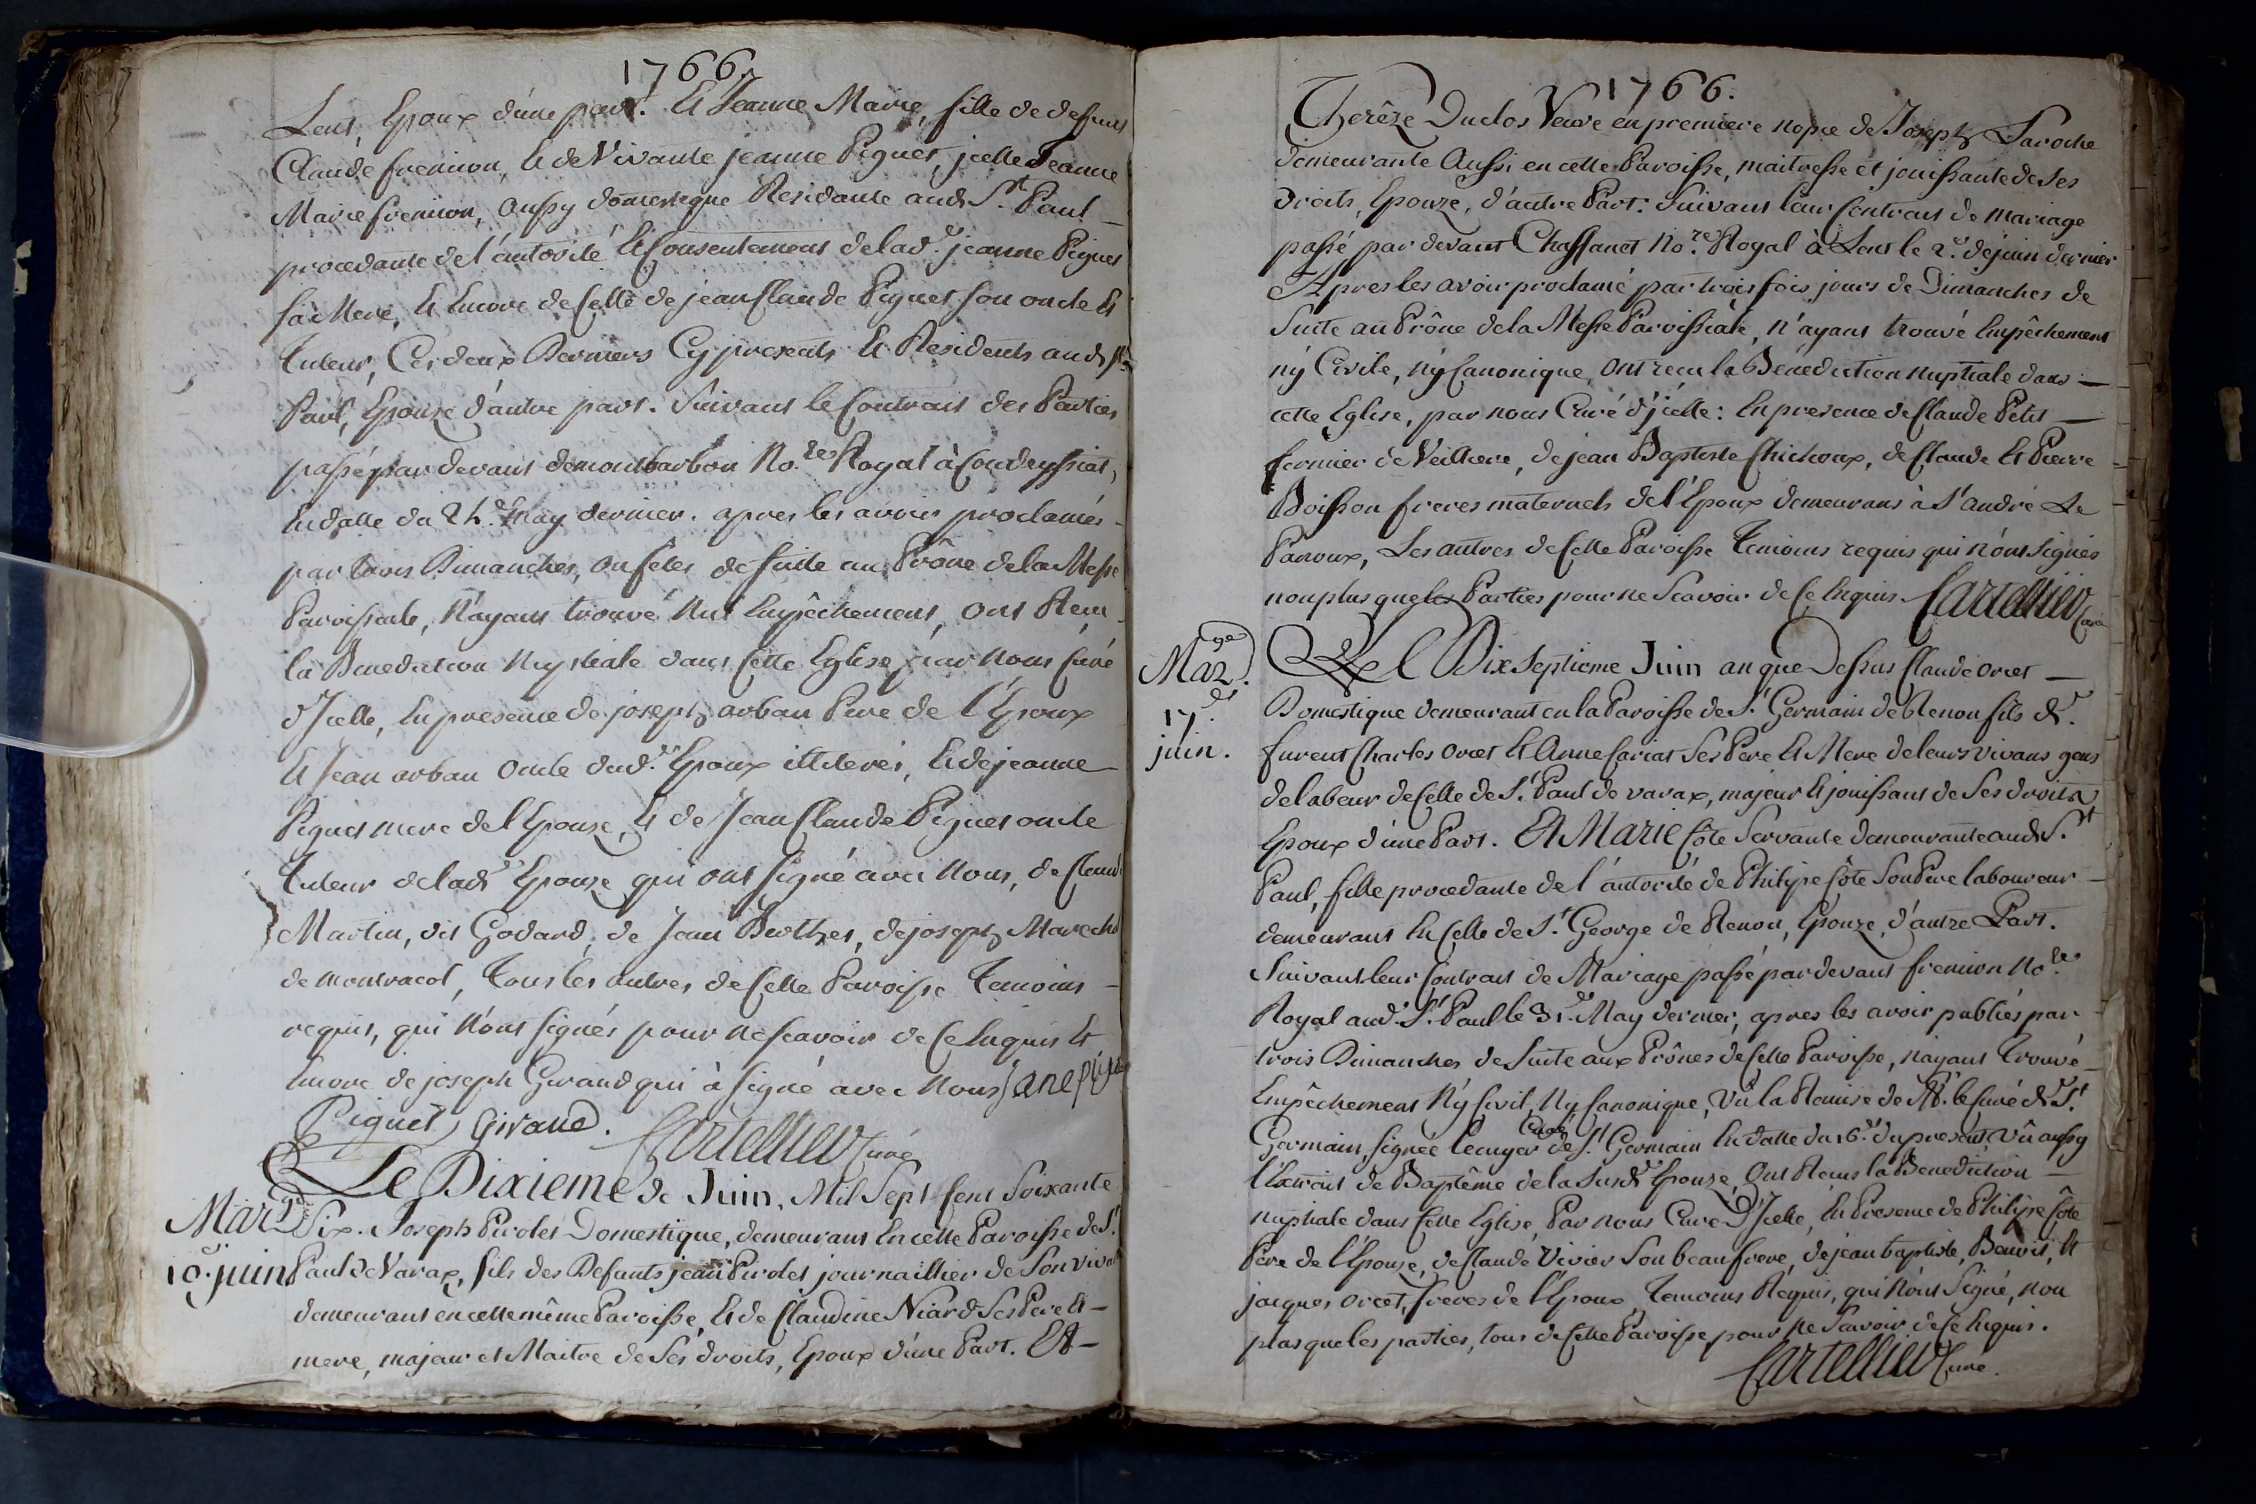 1766.
Lent, Epoux d'une part. Et Jeanne Marie, fille de defunt
Claude fremion, et de Vivante jeanne Piguet, jcelle Jeanne
Marie fremion, aussy domestique Residante aud. St. Paul
procedante de l'autorité Et Consentement de lad.e jeanne Piguet
sa Mere, Et Encore de Celle de jean Claude Piguet son oncle Et
tuteur, Ces deux Derniers Cy presents Et Residents aud. St.
Paul, Epouze d'autre part. Suivant le Contrat des Parties
passé par devant demontbarbon No.re Royal à Condeyssiat,
En datte du 24.e May dernier. apres les avoir proclamés
par trois Dimanches, ou fêtes de suite au Prône de la Messe
Paroissiale, N'ayant trouvé Nul Empêchement, ont Reçu
la Benediction Nuptiale dans Cette Eglise par Nous Curé
d'Jcelle, En presence de joseph orban Pere de l'Epoux
Et Jean orban Oncle dud.it Epoux illiterés, Et de jeanne
Piguet mere de l'Epouze, Et de Jean Claude Piguet oncle
tuteur de lad.e Epouze qui ont signé avec Nous, de Claude
Martin, dit Godard, de Jean Berthet, de joseph Marechal
de montracol, tous les autres de Cette Paroisse temoins
requis, qui N'ont signés pour ne scavoir de Ce Enquis Et
Encore de joseph Giraud qui à signé avec Nous
Piguet, Giraud. Cartellier Curé
Le Dixieme de Juin, Mil Sept Cent Soixante
Mar.ge Six. Joseph Pirolet Domestique, demeurant En cette Paroisse de St.
10.e juin Paul de Varax, fils des Defunts jean Pirolet journaillier de Son vivant
demeurant en cette même Paroisse, Et de Claudine Niard Ses Pere Et
mere, majeur et Maitre de Sés droits, Epoux d'une Part. Et
1766.
Therêze Duclos Veuve en premiere nopce de Joseph Laroche
demeurante Aussi en cette Paroisse, maitresse et jouissante de Ses
Droits, Epouze, d'autre Part: Suivant leur Contrat de mariage
passé par devant Chassanet No.re Royal à Lent le 2.e de juin dernier
Apres les avoir proclamé par trois fois jours de Dimanches de
Suite au Prône de la Messe Paroissiale, n'ayant trouvé Empêchement
ny Civile, ny Canonique, ont recu la Bénédiction nuptiale dans
cette Eglise, par nous Curé d'jcelle: En presence de Claude Petit
fermier de Veilliere, de jean Baptiste Chichoux, de Claude Et Pierre
Boisson freres maternels de l'Epoux demeurans à St andré Le
Panoux, Les autres de Cette Paroisse temoins requis qui n'ont signés
non plus que les Parties pour ne Scavoir de Ce Enquis. Cartellier Curé
Mar.ge
17.e
juin.
Le Dix Septieme Juin an que Dessus Claude orcet
Domestique demeurant en la Paroisse de St. Germain de Renon fils de
furent Charles orcet Et Anne Cariat Ses Pere Et Mere de leurs vivans gens
de labeur de Celle de St. Paul de varax, majeur Et jouissant de Ses droits
Epoux d'une Part. Et Marie Côte Servante demeurante aud. St.
Paul, fille procedante de l'autorité de Philipe Côte Son Pere laboureur
demeurant En Celle de St. George de Renon, Epouze, d'autre Part.
Suivant leur Contrat de Mariage passé par devant fremion No.re
Royal aud. St. Paul le 31.e May dernier, apres les avoir publiés par
trois Dimanches de Suite aux Prônes de Cette Paroisse, n'ayant trouvé
Empêchement Ny Civil, Ny Canonique, Vu la Remise de Mr. le Curé de St.
Germain, signée Lecuyer Curé de St. Germain En datte du 16.e du present Vû aussy
l'Extrait de Baptême de la Susd.e Epouze, ont Recus la Benediction
nuptiale dans Cette Eglise, Par nous Curé D'Jcelle, En Presence de Philipe Côte
Pere de l'Epouze, de Claude Vivier Son beau frere, de jean baptiste, Benoit, Et
jacques orcet, freres de l'Epoux, temoins Requis, qui N'ont Signé, non
plus que les parties, tous de Cette Paroisse pour ne Scavoir de Ce Enquis.
Cartellier Curé